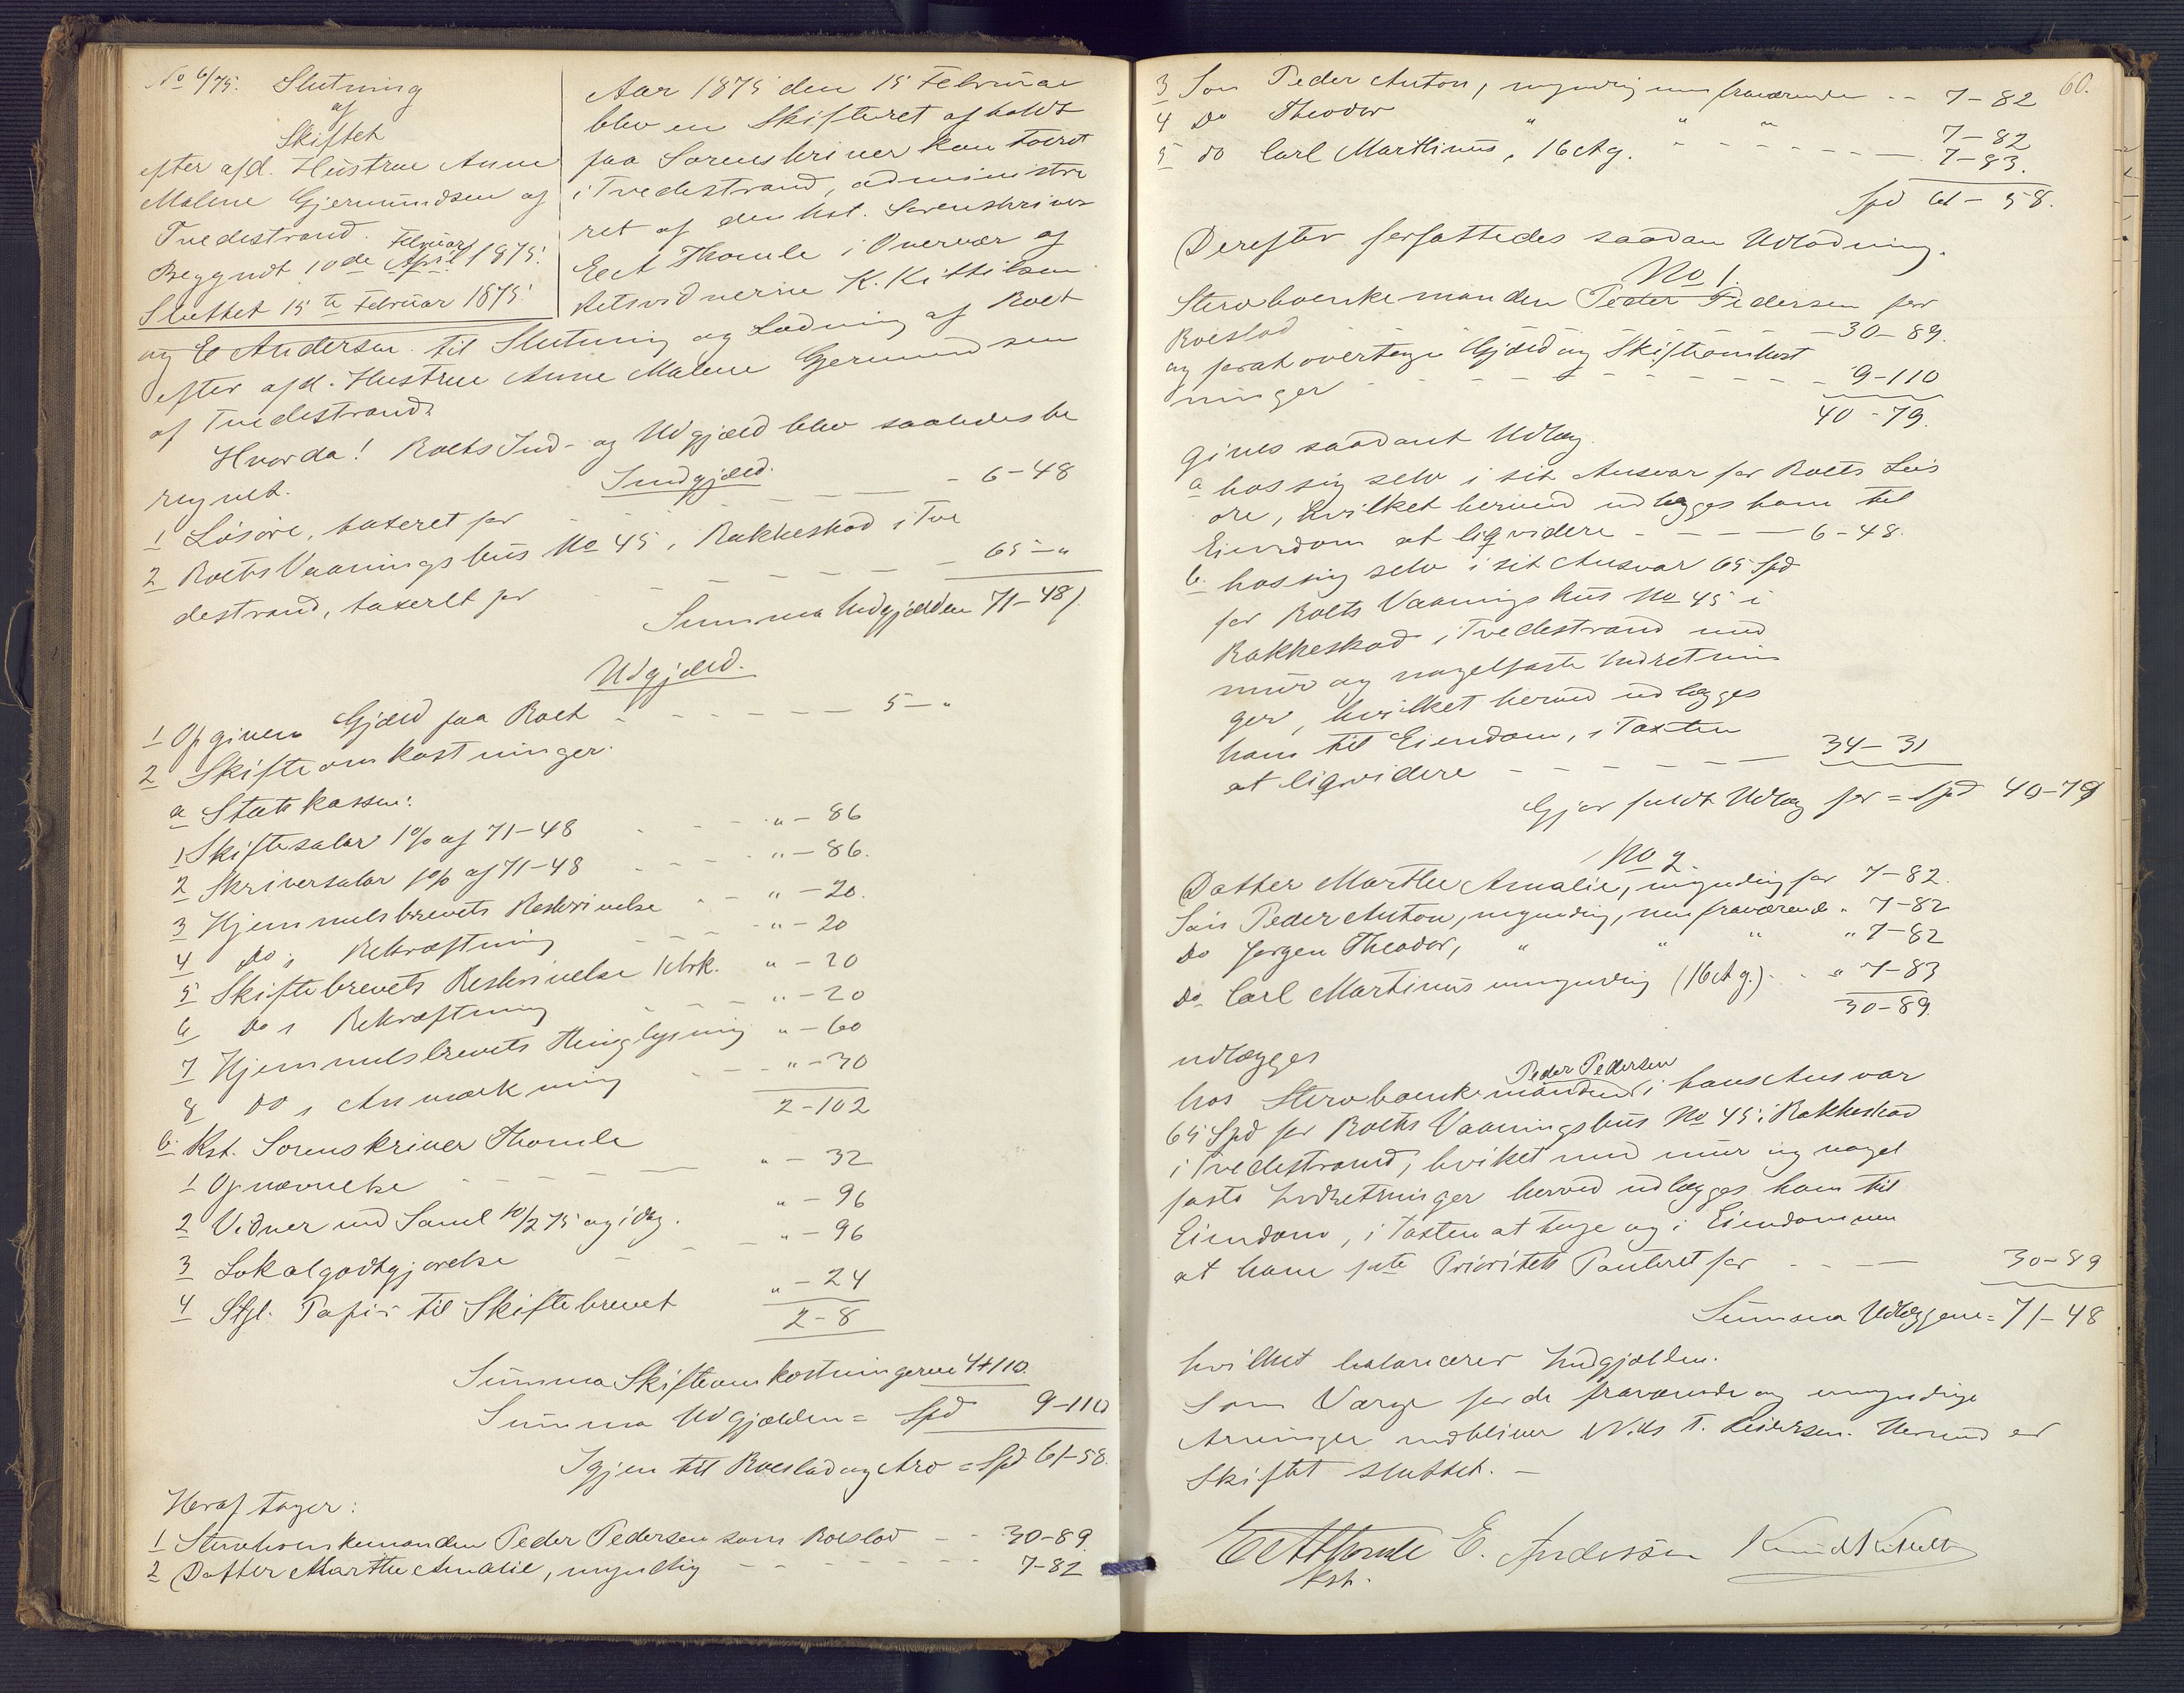 No 6/75. Slutning
af
Skiftet
efter afd. Hustrue Anne
Malene Gjermundsen af
Tvedestrand.
Begyndt 10de Februar April 1875.
Sluttet 15te Februar 1875
Aar 1875 den 15 Februar
blev en Skifteret afholdt
paa Sorenskriver kontoret
i Tvedestrand, administre
ret af den kst. Sorenskriver
E A Thomle i Overvær af
Retsvidnerne K. Kittilsen
og E Andersen til Slutning og Lodning af Boet
efter afd. Hustrue Anne Malene Gjermundsen
af Tvedestrand.
Hvorda! Boets Ind- og Udgjæld blev saaledes be
regnet.
Indgjæld.
1 Løsøre, taxeret for - - - 6-48
2 Boets Vaaningshus No 45, Bakkeskod i Tve
destrand, taxeret for - - - 65-"
Summa Indgjælden 71-48/.
Udgjæld.
1 Opgiven Gjæld paa Boet - - - 5-"
2 Skifteomkostninger.
a Statskassen:
1 Skiftesalar 1% af 71-48 - - - "-86
2 Skriversalar 1% af 71-48 - - - "-86.
3 Hjemmelsbrevets Beskrivelse - - "-20.
4 Do, Bekræftning - - - "-20
5 Skiftebrevets Beskrivelse 1 Ark. "-20
6 Do, Bekræftning - - - "-20
7 Hjemmelsbrevets Thinglysning "-60
8 Do, Anmærkning - - - "-30
2-102
b. Kst. Sorenskriver Thomle
1 Opnævnelse - - - "-32
2 Vidner ved Saml 10/2 75 og idag. "-96
3 Lokalgodtgjørelse - - - "-96
4 Stpl. Papir til Skiftebrevet "-24
2-8
Summa Skifteomkostningerne 4-110.
Summa Udgjælden = Spd 9-110
Igjen til Boeslod og Arv = Spd 61-58.
Heraf tager:
1 Stervboenkemanden Peder Pedersen som Boeslod - - 30-89.
2 Datter Marthe Amalie, myndig - - - 7-82
60.
3 Søn Peder Anton, myndig men fraværende - - 7-82
4 Do Theodor " " " 7-82
5 do Carl Marthinus, 16 Ag. - - - 7-83.
Spd 61-58.
Derefter forfattedes saadan Udlodning.
No 1.
Stervboenkemanden Peder Pedersen for
Boeslod - - - 30-89.
og for at overtage Gjæld og Skifteomkost
ninger - - - 9-110
40-79.
gives saadant Udlæg.
a hos sig selv i sit Ansvar for Boets Løs
øre, hvilket herved udlægges ham til
Eiendom at liqvidere - - - 6-48.
b. hos sig selv i sit Ansvar 65 Spd
for Boets Vaaningshus No 45 i
Bakkeskod i Tvedestrand med
mur og nagelfaste Indretnin
ger, hvilket herved udlægges
ham til Eiendom, i Taxten
at liqvidere - - - 34-31
Gjør fuldt Udlæg for = Spd 40-79
No 2.
Datter Marthe Amalie, myndig for 7-82.
Søn Peder Anton, myndig, men fraværende " 7-82
Do Jørgen Theodor, " " " " 7-82
Do Carl Martinus umyndig (16 Ag.) - " 7-83
30-89.
udlægges
hos Stervboenkemanden Peder Pedersen i hans Ansvar
65 Spd for Boets Vaaningshus No 45 i Bakkeskod
i Tvedestrand, hvilket med mur og nagel
faste Indretninger herved udlægges ham til
Eiendom, i Taxten at tage og i Eiendommen
at have 1ste Prioritets Panteret for - - - 30-89
Summa Udlæggene = 71-48
hvilket balancerer Indgjælden.
Som Værge for de fraværende og umyndige
Arvinger udbliver Nils T. Pedersen. Herved er
Skiftet sluttet. -
E A Thomle E. Andersen Knud Kittilsen
kst.